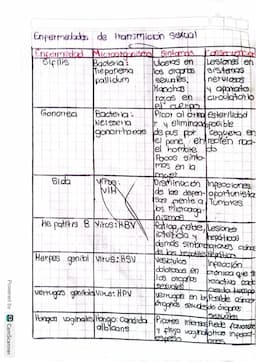 Enfermedades de transmición sexual
Enfermedad Microorganismo Síntomas Consecuencias
Sifilis
Bacteria:
Treponema
pallidum
Ulceras en
los órganos
sexuales,
Manchas
rojas en
el cuerpo
Lesiones en
sistemas
nerviosos
y aparato
circulatorio
Gonorrea
Bacteria:
Neisseria
gonorrhoeae
Picor al orinar
y eliminación
de pus por
el pene, en
el hombre
Pocos sínto-
mas en la
mujer
Esterilidad
posible
ceguera en
recién naci-
do
Sida
Virus:
VIH
Disminución
de las defen-
sas frente a
los microorga-
nismos
Infecciones
oportunista
Tumores
Hepatitis B
Virus: HBV
Fatiga, nauseas,
ictericia y
demás síntomas
Lesiones
hepáticas
Herpes genital
Virus: HSV
Vesículas
dolorosas en
los órganos
sexuales
Infección
crónica que se
reactiva cada
cierto tiempo
Verrugas genitales
Virus: HPV
Verrugas en
órganos sexuales
Hongos vaginales
Hongo candida
albicans
Picores intensos
y flujo vaginal
Powered by CamScanner